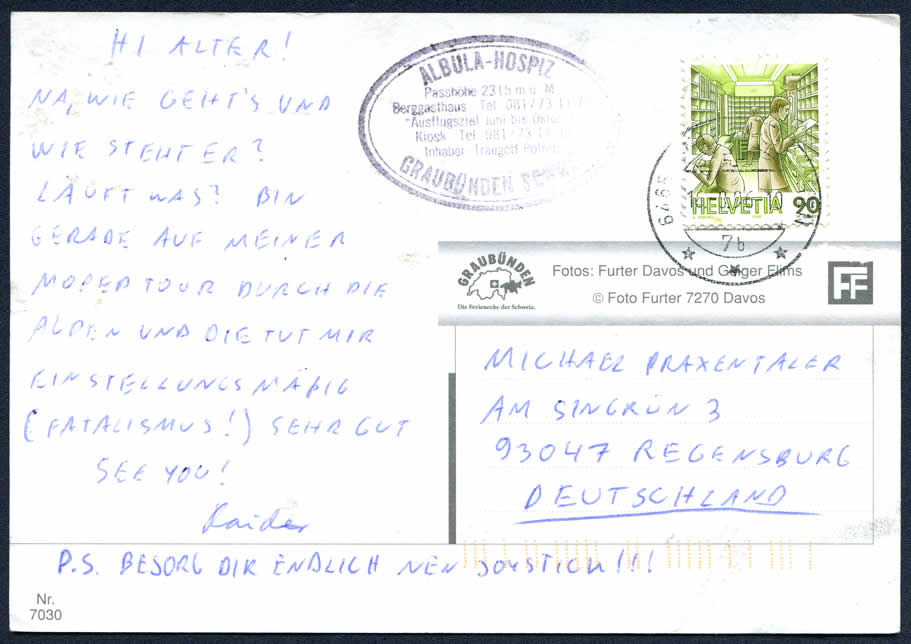 HI ALTER!
NA, WIE GEHT'S UND
WIE STEHT ER?
LÄUFT WAS? BIN
GERADE AUF MEINER
MOPEDTOUR DURCH DIE
ALPEN UND DIE TUT MIR
EINSTELLUNGSMÄßIG
(FATALISMUS!) SEHR GUT
SEE YOU!
P.S. BESORG DIR ENDLICH NEN JOYSTICK!!!
Nr.
7030
ALBULA-HOSPIZ
Passhöhe 2315 m ü. M
Berggasthaus Tel. 081/73 11
Ausflugsziel Juni bis
Kiosk Tel. 081/73 1
Inhaber Traugott
GRAUBÜNDEN
HELVETIA 90
7b
GRAUBÜNDEN
Die Ferienecke der Schweiz.
Fotos: Furter Davos und Geiger Flims
© Foto Furter 7270 Davos
FF
MICHAEL PRAXENTALER
AM SINGRÜN 3
93047 REGENSBURG
DEUTSCHLAND